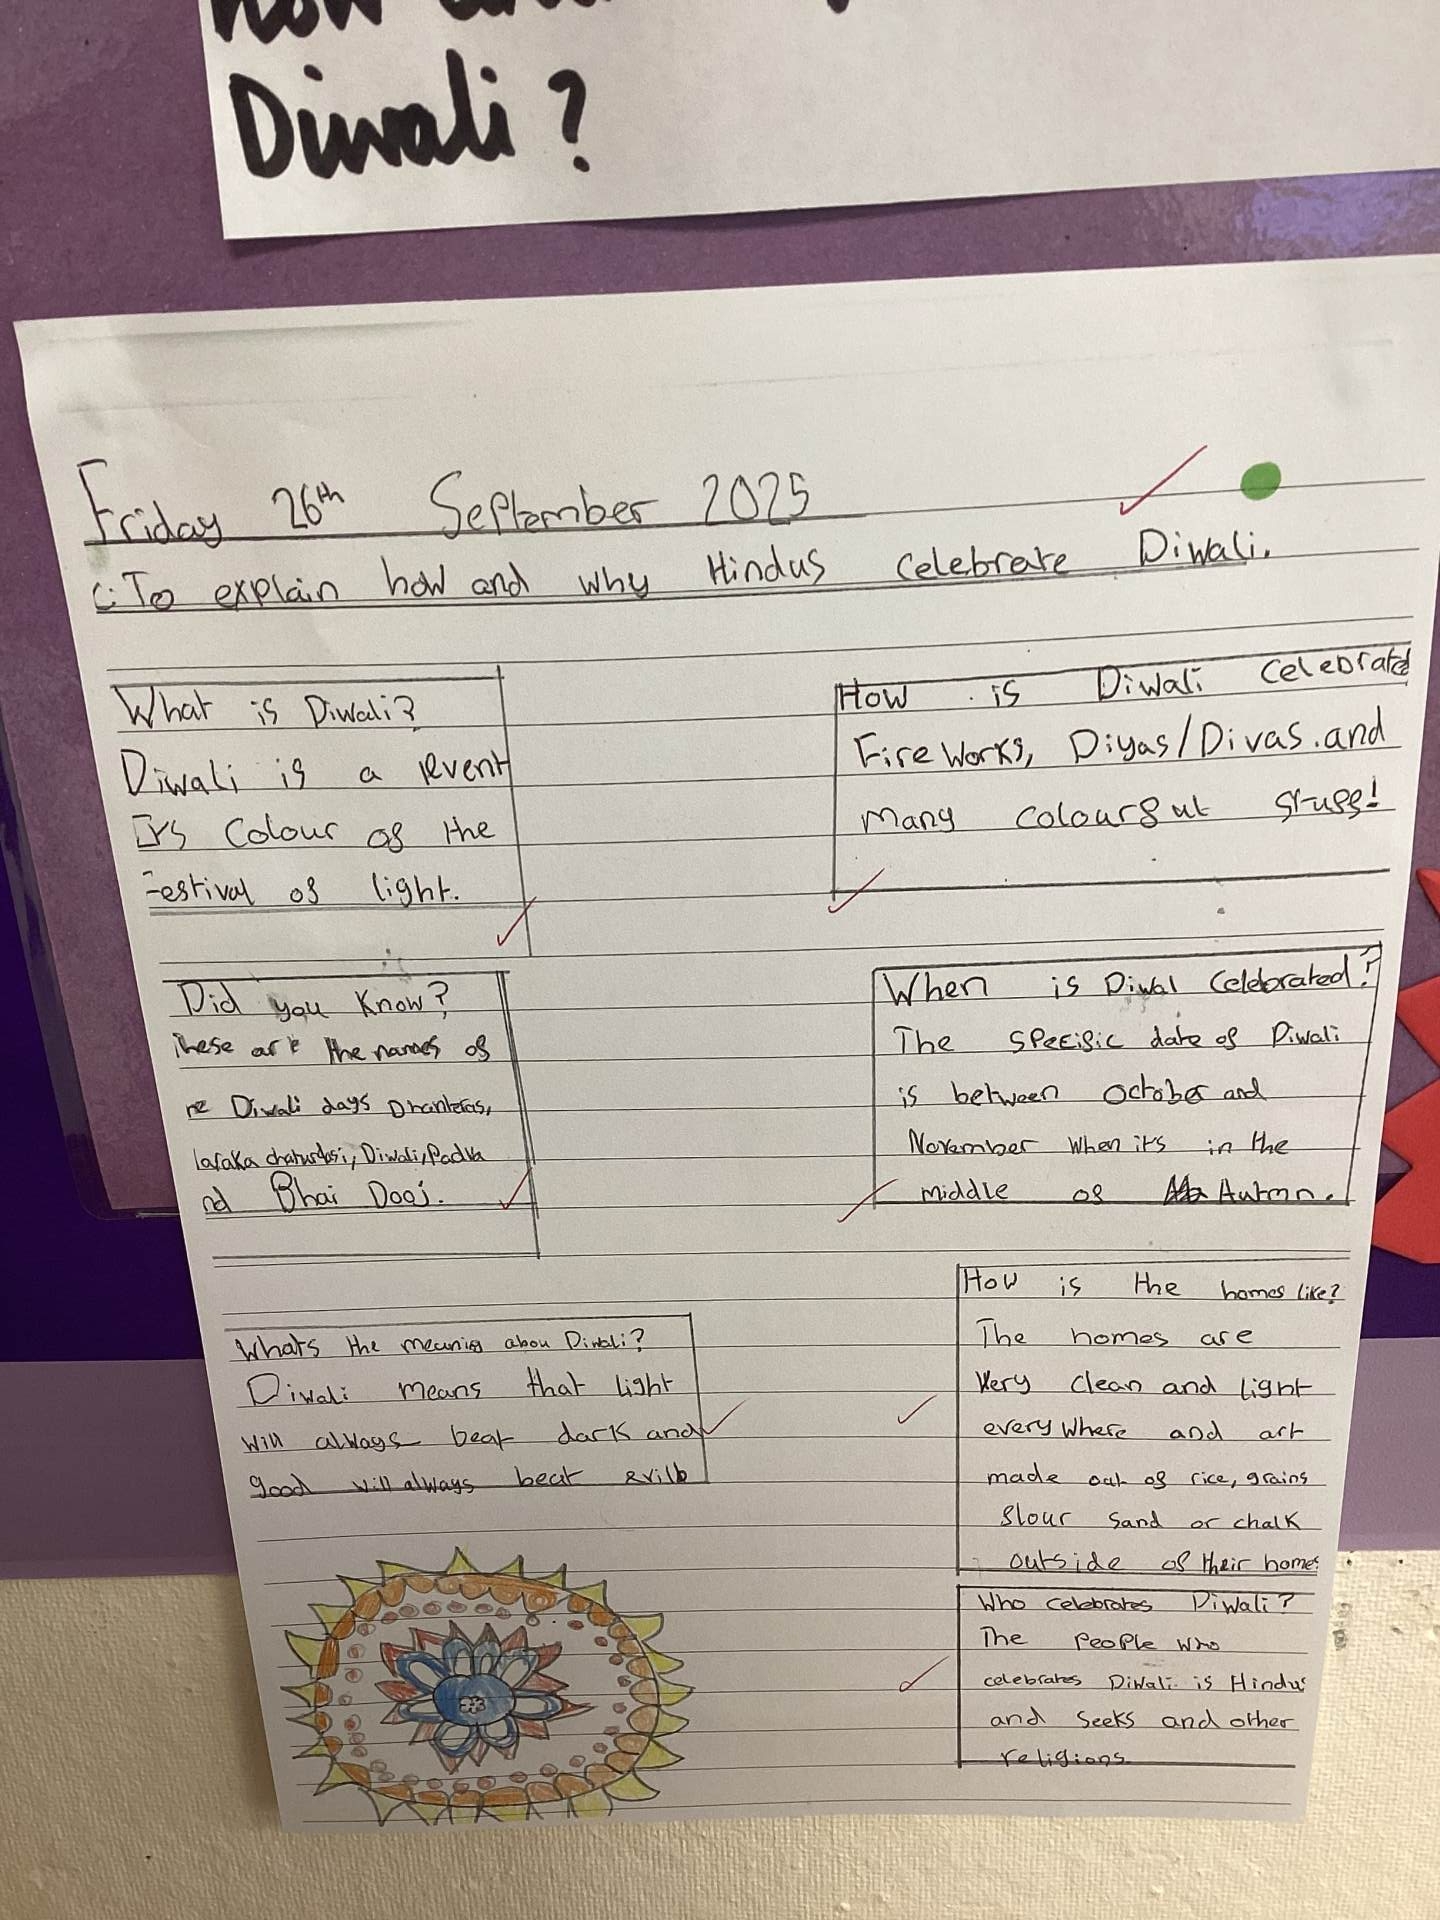 Diwali?
Friday 26th September 2025
C: To explain how and why Hindus celebrate Diwali.
What is Diwali?
Diwali is a event
Its Colour of the
Festival of light.
How is Diwali celebrated
Fireworks, Diyas/Divas.and
many colourfut stuff!
Did you Know?
these are the names of
he Diwali days Dhanteras,
laraka chaturdasi, Diwali, Padva
nd Bhai Dooj.
When is Diwal Celebrated?
The specific date of Diwali
is between october and
November when it's in the
middle of Autmn.
Whats the meaning abou Diwali?
Diwali means that light
will always beat dark and
good will always beat
How is the homes like?
The homes are
Very clean and light
everywhere and art
made out of rice, grains
flour sand or chalk
outside of their homes
Who celebrates Diwali?
The People who
celebrates Diwali is Hindus
and Seeks and other
religions.